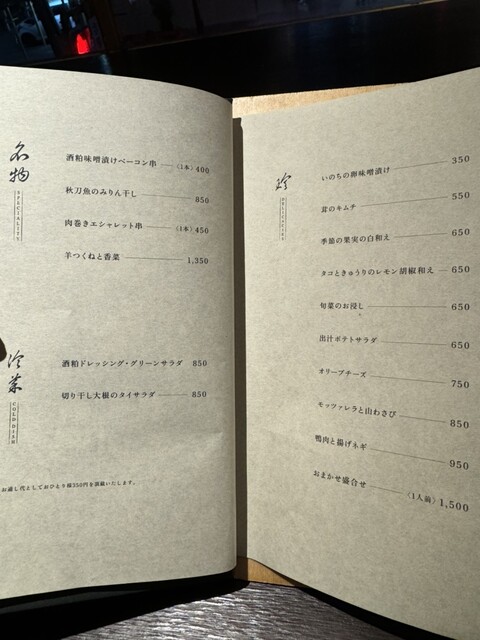 名物
SPECIALITY
酒粕味噌漬けベーコン串 〈1本〉400
秋刀魚のみりん干し 850
肉巻きエシャレット串 〈1本〉450
羊つくねと香菜 1,350
冷菜
COLD DISH
酒粕ドレッシング・グリーンサラダ 850
切り干し大根のタイサラダ 850
お通し代としておひとり様350円を頂戴いたします。
珍
DELICACIES
いのちの卵味噌漬け 350
茸のキムチ 550
季節の果実の白和え 650
タコときゅうりのレモン胡椒和え 650
旬菜のお浸し 650
出汁ポテトサラダ 650
オリーブチーズ 750
モッツァレラと山わさび 850
鴨肉と揚げネギ 950
おまかせ盛合せ 〈1人前〉1,500